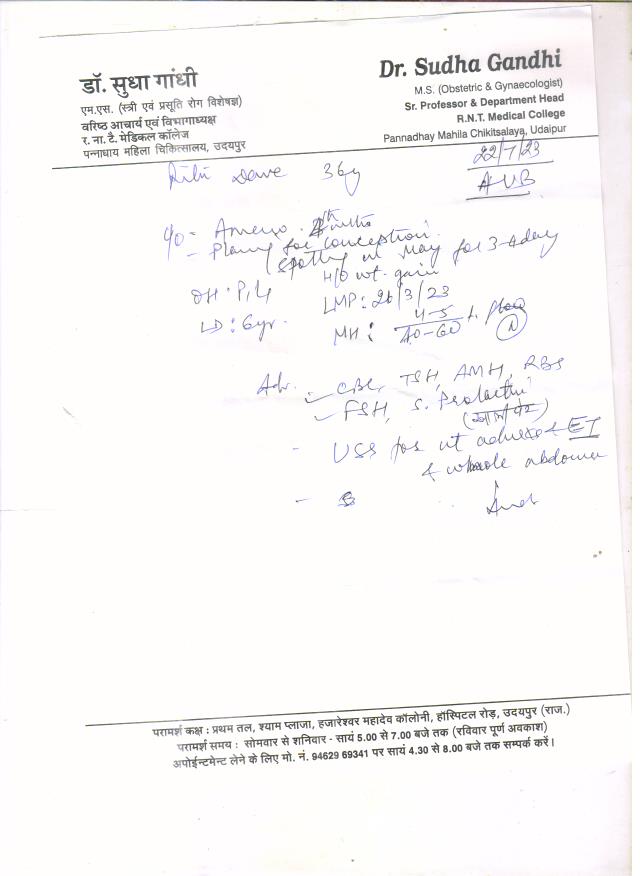 डॉ. सुधा गांधी
एम.एस. (स्त्री एवं प्रसूति रोग विशेषज्ञ)
वरिष्ठ आचार्य एवं विभागाध्यक्ष
र. ना. टै. मेडिकल कॉलेज
पन्नाधाय महिला चिकित्सालय, उदयपुर
Dr. Sudha Gandhi
M.S. (Obstetric & Gynaecologist)
Sr. Professor & Department Head
R.N.T. Medical College
Pannadhay Mahila Chikitsalaya, Udaipur
22/7/23
Dave 36y
AUB
for conception
(spotting in May for 3-4 day
H/O wt. gain
OH: P1L1
LMP: 26/3/23
LD: 6yr.
MH: 4-5
40-60
Adv. - CBC, TSH, AMH, RBS
- FSH, S. Prolactin
- USS for ut adnexa & ET
& whole abdomen
परामर्श कक्ष : प्रथम तल, श्याम प्लाजा, हजारेश्वर महादेव कॉलोनी, हॉस्पिटल रोड़, उदयपुर (राज.)
परामर्श समय : सोमवार से शनिवार - सायं 5.00 से 7.00 बजे तक (रविवार पूर्ण अवकाश)
अपोईन्टमेन्ट लेने के लिए मो. नं. 94629 69341 पर सायं 4.30 से 8.00 बजे तक सम्पर्क करें।